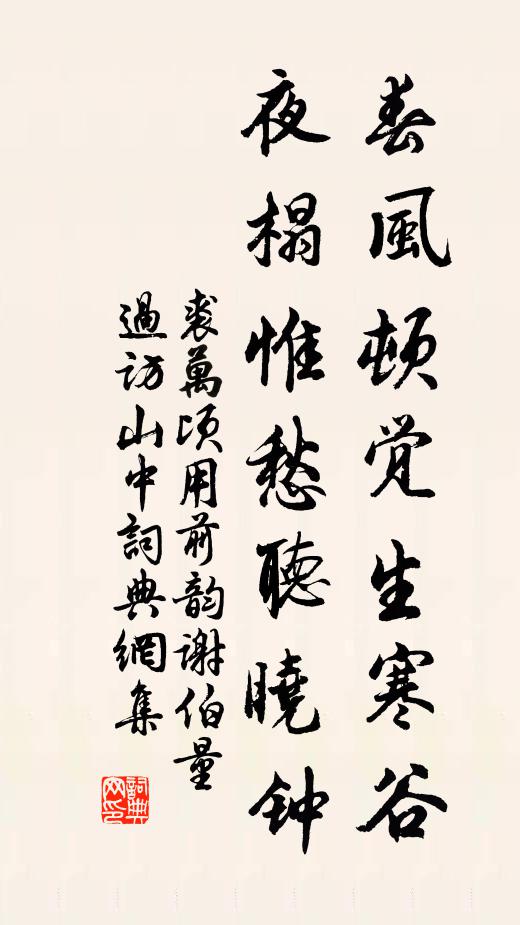 春風頓觉生寒谷
夜榻惟愁聽曉钟
裘萬頃用前韵谢伯量
過訪山中詞典網集
詞典
网印